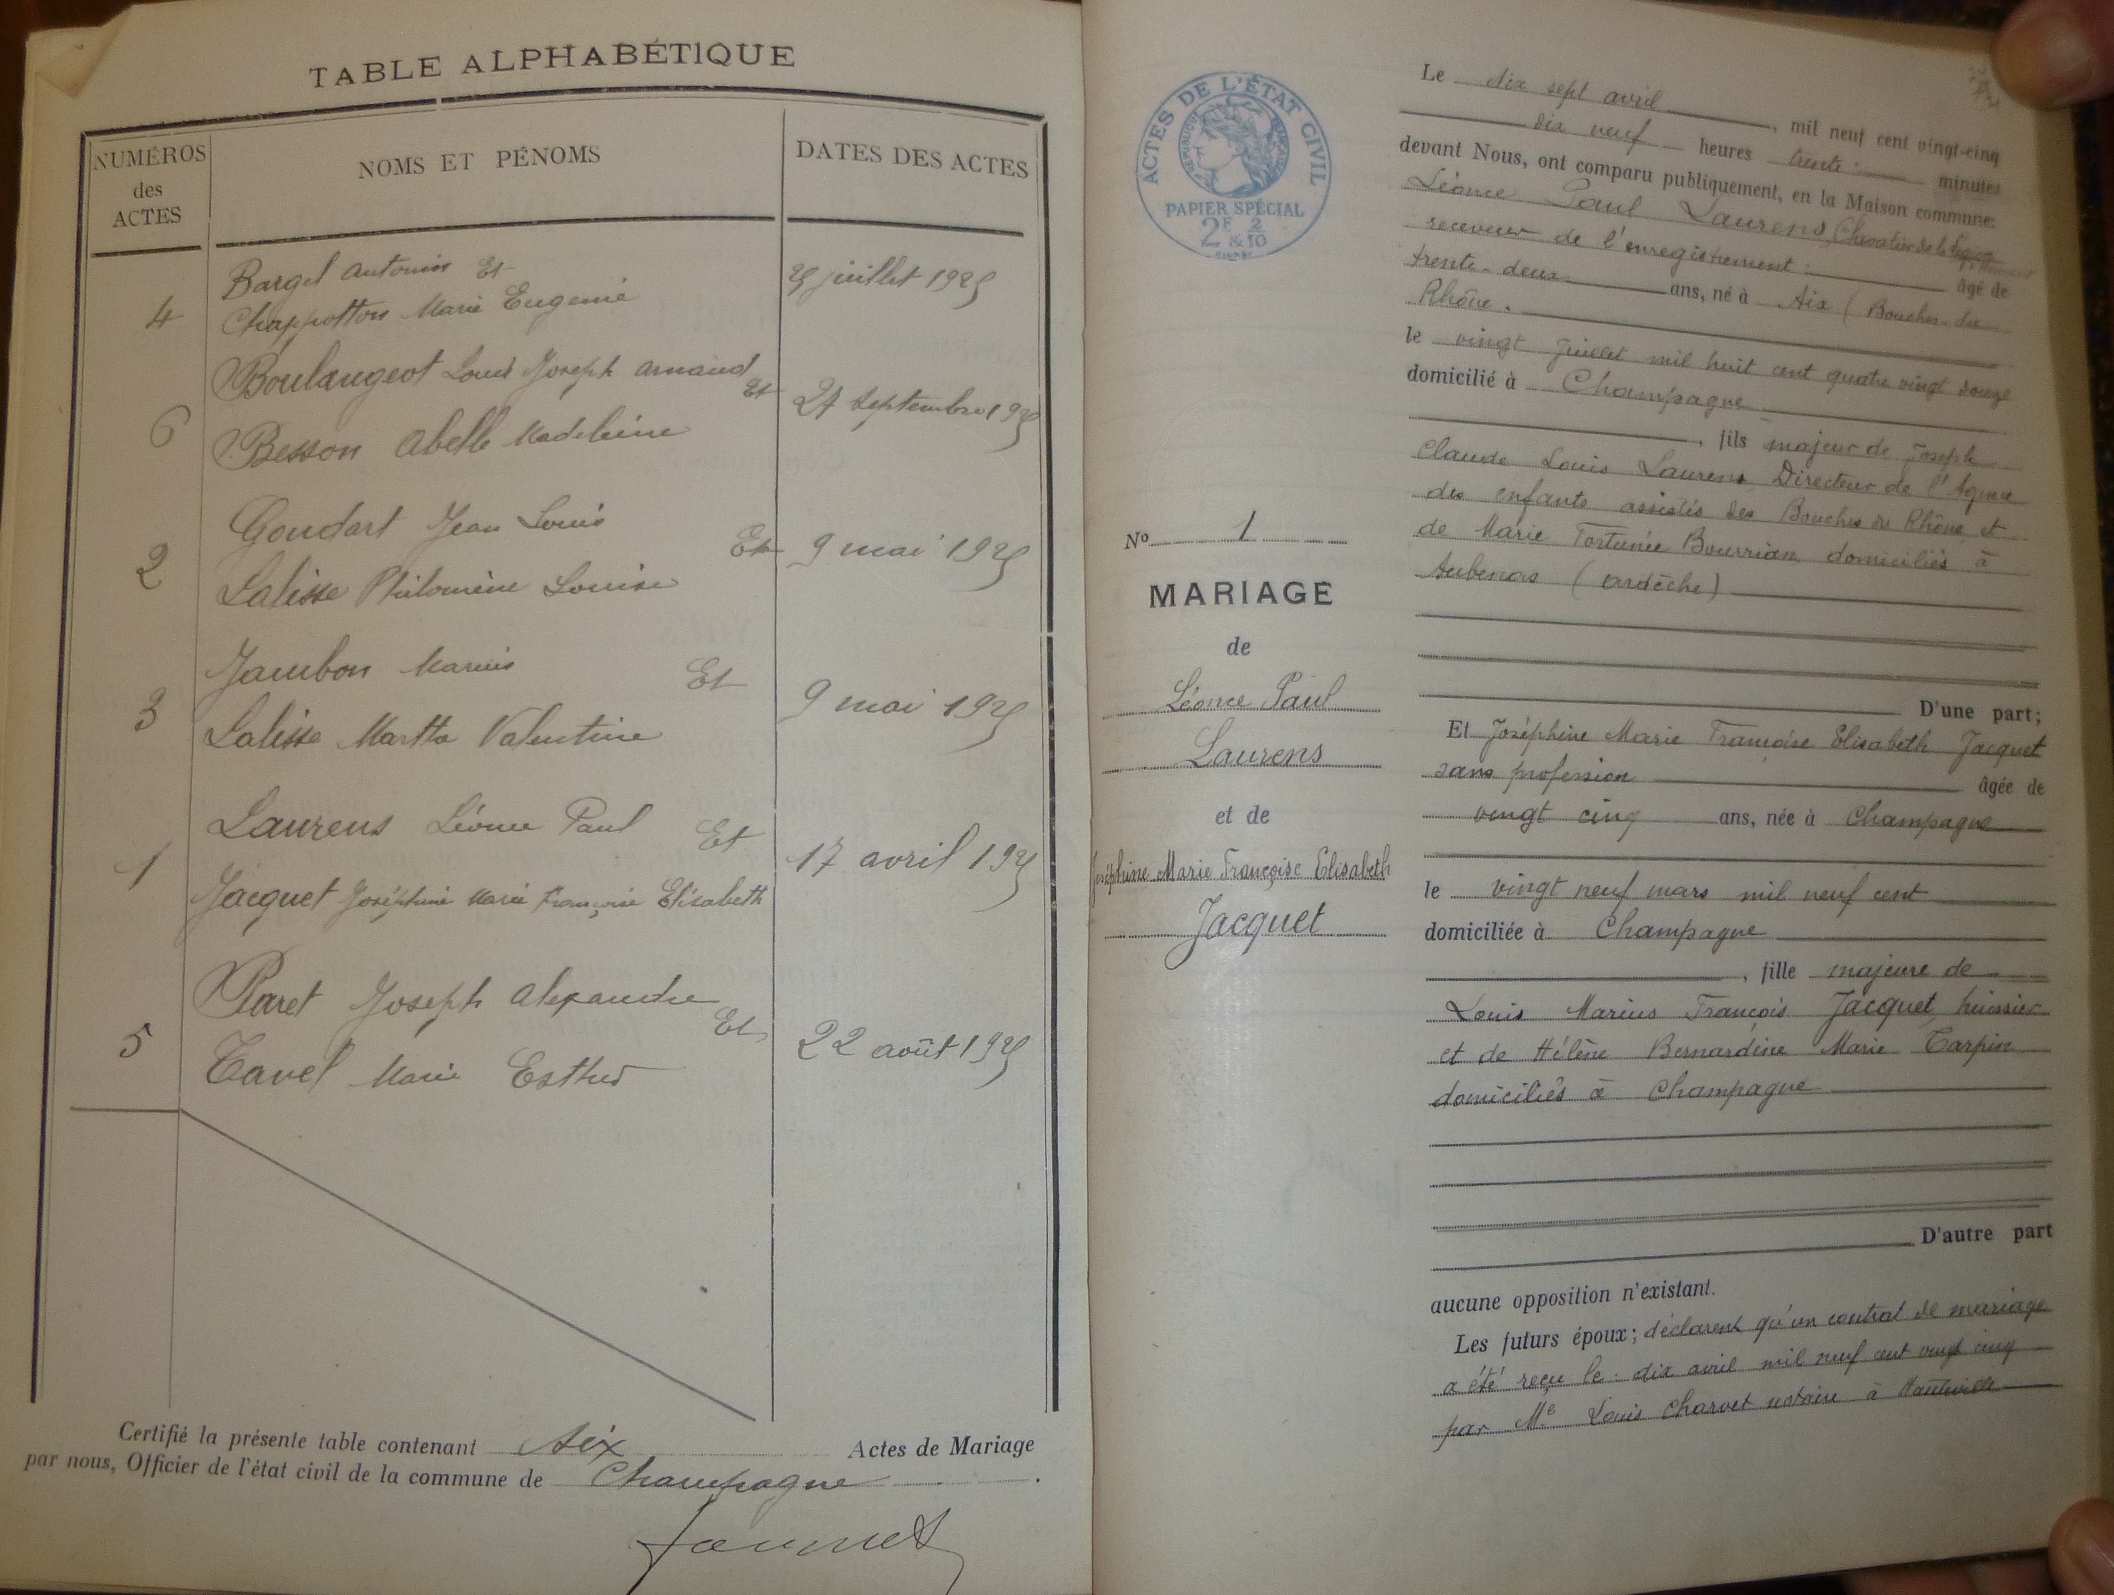 TABLE ALPHABÉTIQUE
NUMÉROS des ACTES
NOMS ET PÉNOMS
DATES DES ACTES
4
Bargel Antonin Et
Chappotton Marie Eugenie
juillet 1925
6
Boulangeot Louis Joseph Armand Et
Besson Abelle Madeleine
24 septembre 1925
2
Goudart Jean Louis Et
Lalisse Philomène Louise
9 mai 1925
3
Jambon Marius Et
Lalisse Martha Valentine
9 mai 1925
1
Laurens Léonce Paul Et
Jacquet Joséphine Marie Françoise Elisabeth
17 avril 1925
5
Paret Joseph Alexandre Et
Tavel Marie Esther
22 août 1925
Certifié la présente table contenant Six Actes de Mariage
par nous, Officier de l'état civil de la commune de Champagne.
ACTES DE L'ÉTAT CIVIL
PAPIER SPÉCIAL
2F & 2/10
No 1
MARIAGE
de
Léonce Paul
Laurens
et de
Joséphine Marie Françoise Elisabeth
Jacquet
Le dix sept avril, mil neuf cent vingt-cinq
dix neuf heures trente minutes
devant Nous, ont comparu publiquement, en la Maison commune:
Léonce Paul Laurens, Chevalier de la Légion
receveur de l'enregistrement âgé de
trente-deux ans, né à Aix (Bouches-du
Rhône.
le vingt Juillet mil huit cent quatre vingt douze
domicilié à Champagne
, fils majeur de Joseph
Claude Louis Laurens, Directeur de l'Agence
des enfants assistés des Bouches du Rhône et
de Marie Fortunée Bourrian domiciliés à
Aubenas (Ardèche)
D'une part;
Et Joséphine Marie Françoise Elisabeth Jacquet
sans profession âgée de
vingt cinq ans, née à Champagne
le vingt neuf mars mil neuf cent
domiciliée à Champagne
, fille majeure de
Louis Marius François Jacquet, huissier
et de Hélène Bernardine Marie Tarpin
domiciliés à Champagne
D'autre part
aucune opposition n'existant.
Les futurs époux; déclarent qu'un contrat de mariage
a été reçu le dix avril mil neuf cent vingt cinq
par Me Louis Charvet notaire à Hauteville